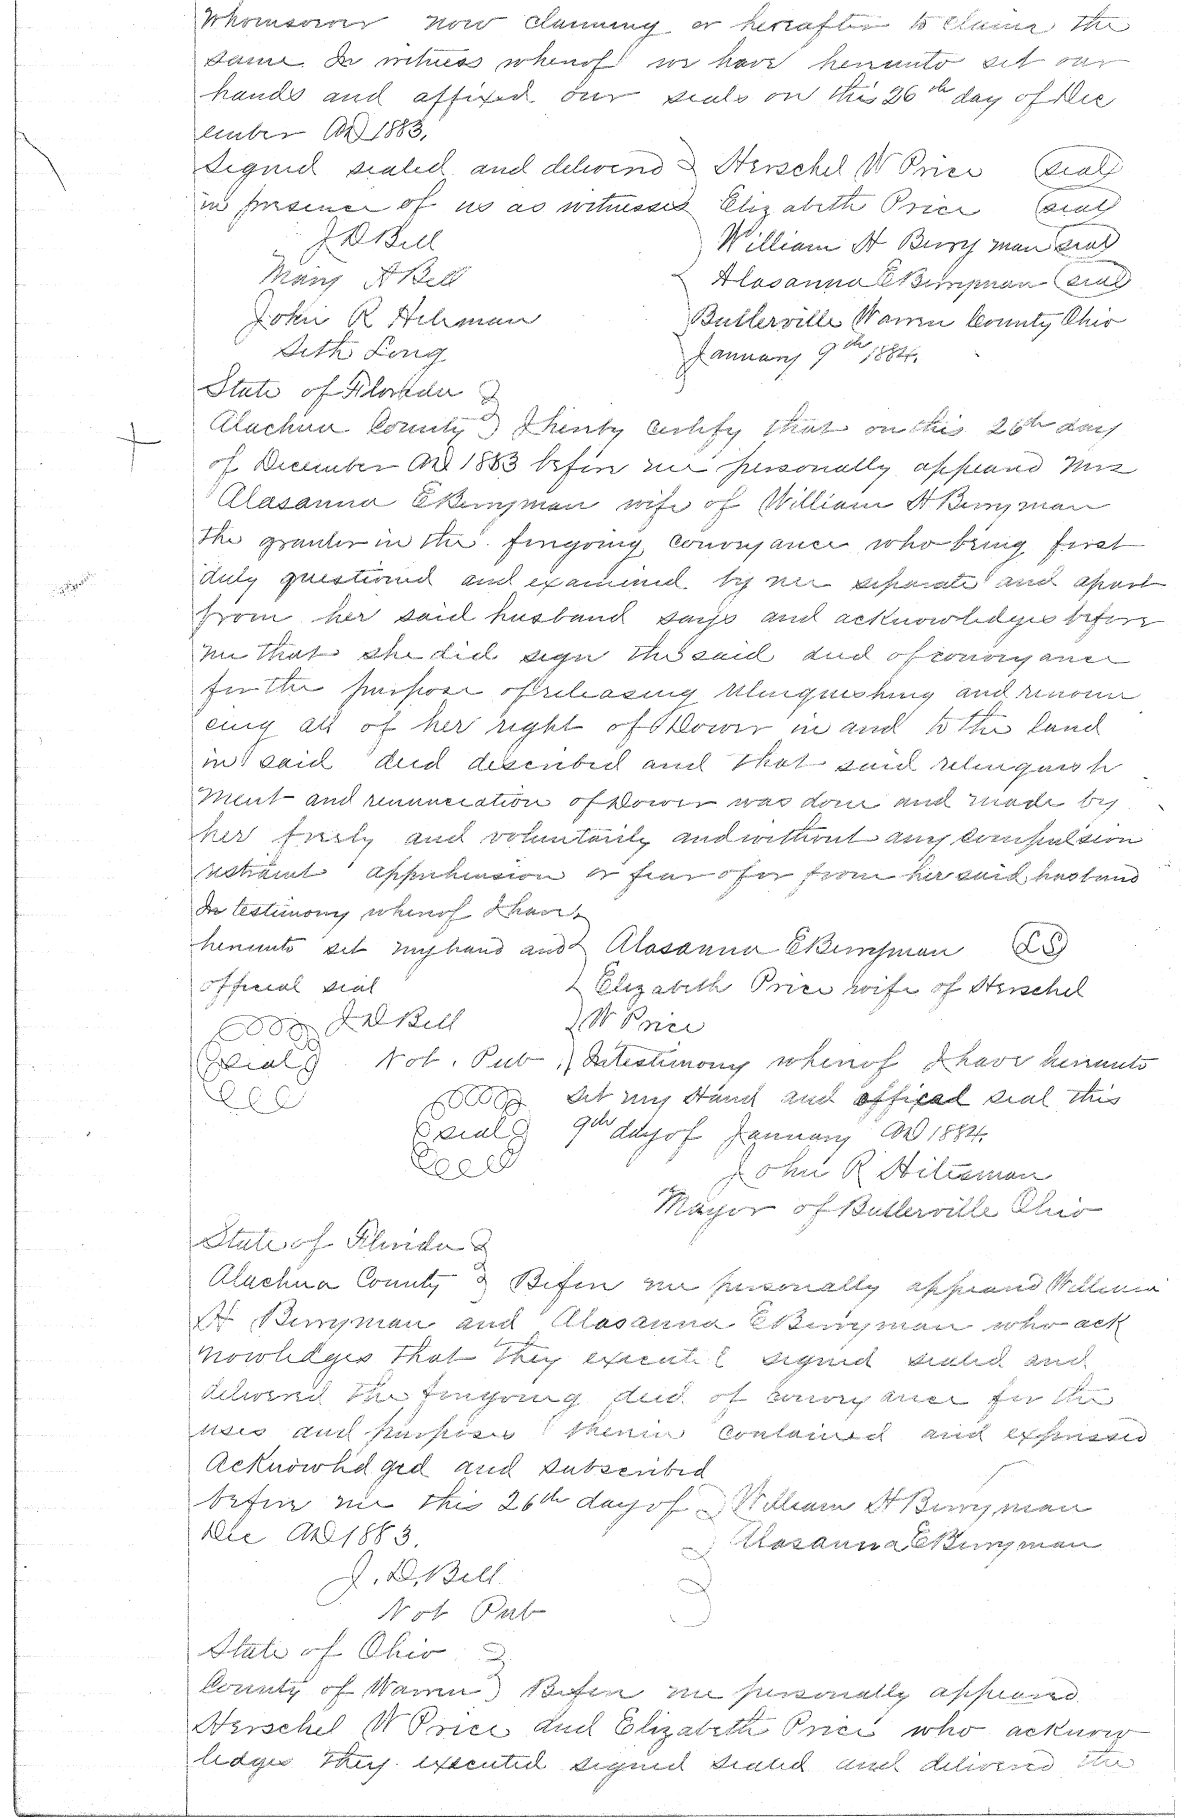 Whomsoever now claiming or hereafter to claim the
same. In witness whereof we have hereunto set our
hands and affixed our seals on this 26th day of Dec
ember AD 1883.
Signed sealed and delivered Herschel W Price (seal)
in presence of us as witnesses Elizabeth Price (seal)
J D Bell William H Berryman (seal)
Mary A Bell Alasanna E Berryman (seal)
John R Butlerville Warren County Ohio
Seth Long January 9th 1884.
State of Florida
Alachua County I hereby certify that on this 26th day
of December AD 1883 before me personally appeared Mrs
Alasanna E Berryman wife of William H Berryman
the grantor in the foregoing conveyance who being first
duly questioned and examined by me separate and apart
from her said husband says and acknowledges before
me that she did sign the said deed of conveyance
for the purpose of releasing relinquishing and renoun
cing all of her right of Dower in and to the land
in said deed described and that said relinquish
ment and renunciation of Dower was done and made by
her freely and voluntarily and without any compulsion
restraint apprehension or fear of or from her said husband
In testimony whereof I have
hereunto set my hand and Alasanna E Berryman (LS)
official seal Elizabeth Price wife of Herschel
J D Bell W Price
(seal) Not. Pub In testimony whereof I have hereunto
set my Hand and affixed seal this
(seal) 9th day of January AD 1884.
John R Hitesman
Mayor of Butlerville Ohio
State of Florida
Alachua County Before me personally appeared William
H Berryman and Alasanna E Berryman who ack
nowledges that they executed signed sealed and
delivered the foregoing deed of conveyance for the
uses and purposes therein contained and expressed
Acknowledged and subscribed
before me this 26th day of William H Berryman
Dec AD 1883. Alasanna E Berryman
J. D. Bell
Not Pub
State of Ohio
County of Warren Before me personally appeared
Herschel W Price and Elizabeth Price who acknow
ledges they executed signed sealed and delivered the